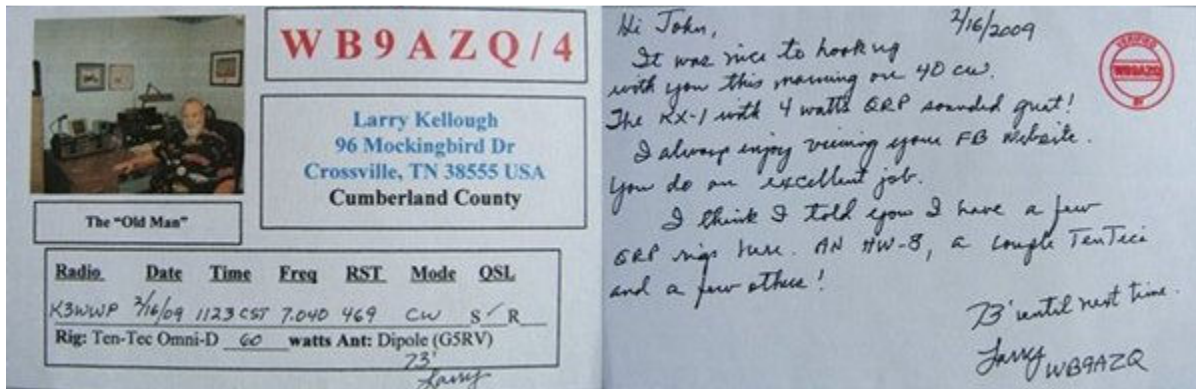 WB9AZQ/4
Larry Kellough
96 Mockingbird Dr
Crossville, TN 38555 USA
Cumberland County
The "Old Man"
Radio Date Time Freq RST Mode QSL
K3WWP 2/16/09 1123 CST 7.040 469 CW S✓ R
Rig: Ten-Tec Omni-D 60 watts Ant: Dipole (G5RV)
73'
Larry
2/16/2009
Hi John,
It was nice to hook up
with you this morning on 40 cw.
The KX-1 with 4 watts QRP sounded great!
I always enjoy viewing your FB website.
You do an excellent job.
I think I told you I have a few
QRP rigs here. AN HW-8, a couple TenTecs
and a few others!
73' until next time.
Larry WB9AZQ
VERIFIED
WB9AZQ
BY